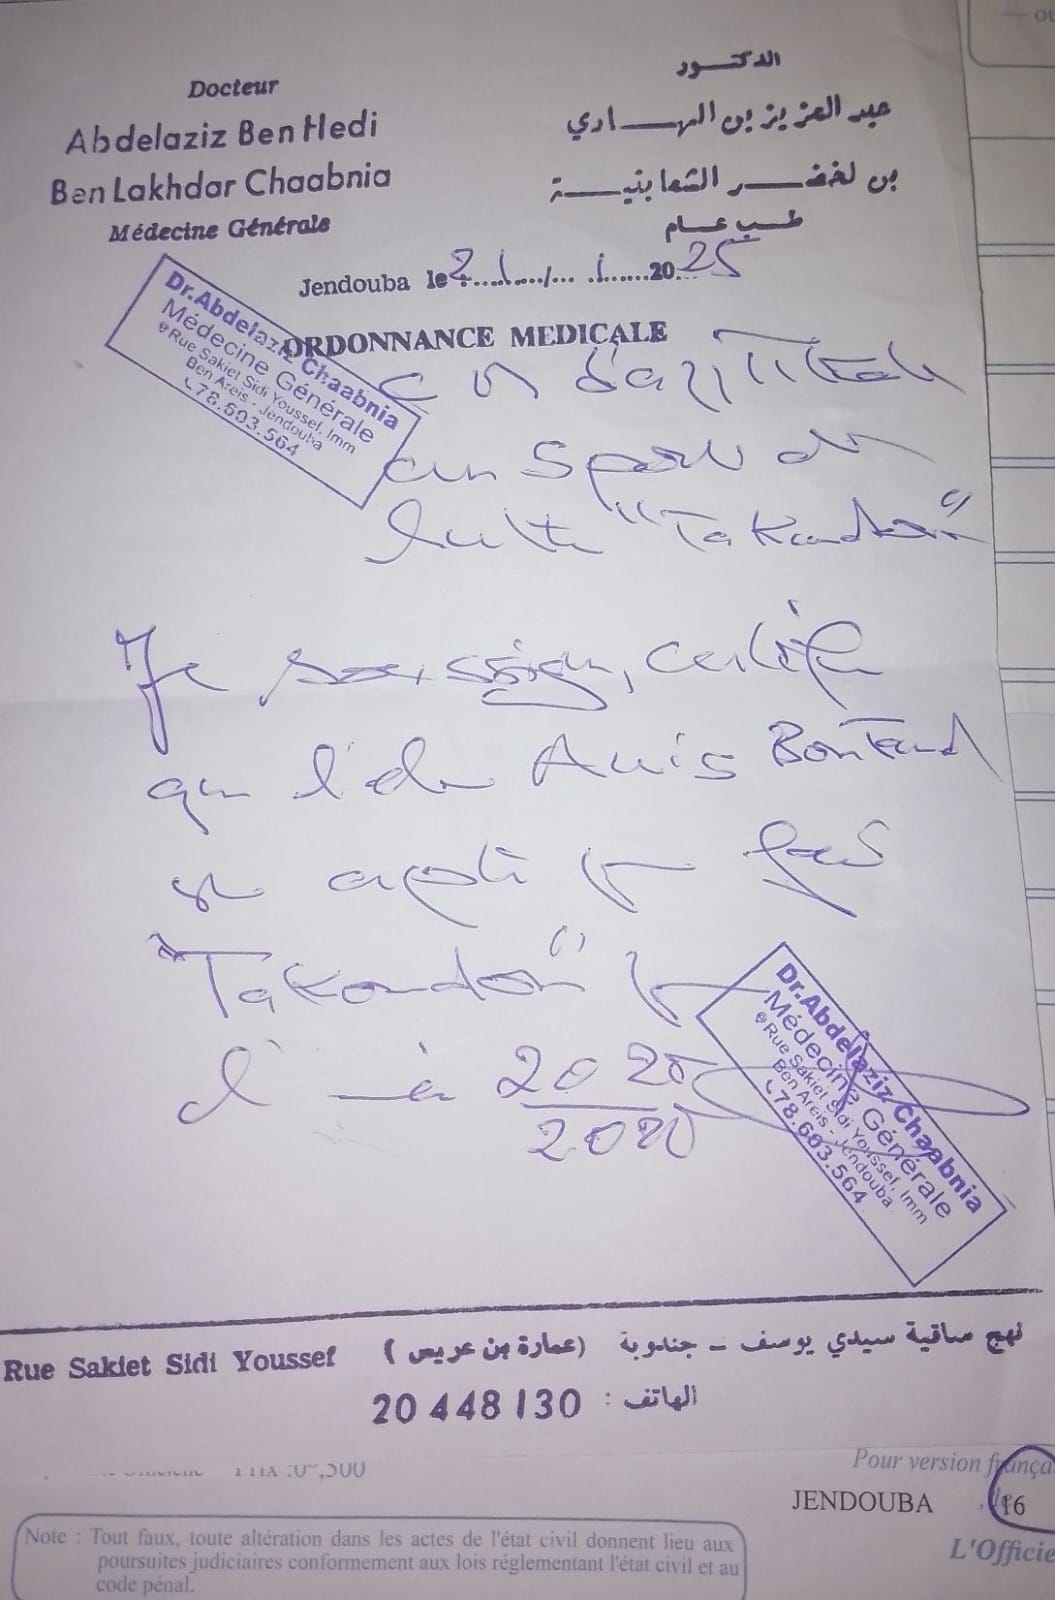 Docteur
Abdelaziz Ben Hedi
Ben Lakhdar Chaabnia
Médecine Générale
الدكتور
عبد العزيز بن الهادي
بن لخضر الشعابنية
طب عام
Jendouba le 21/1/2025
ORDONNANCE MEDICALE
Dr.Abdelaziz Chaabnia
Médecine Générale
Rue Sakiet Sidi Youssef, Imm
Ben Areis - Jendouba
78.603.564
d'aptitude
un sport de
lutte "Takondoo"
Je soussigné, certifie
que l'élève Anis
est apte pr faire
"Takondoo" pr
l' 2025
Dr.Abdelaziz Chaabnia
Médecine Générale
Rue Sakiet Sidi Youssef, Imm
Ben Areis - Jendouba
78.603.564
Rue Sakiet Sidi Youssef نهج ساقية سيدي يوسف - جندوبة (عمارة بن عريس)
الهاتف : 20 448 130
Pour version frança
JENDOUBA
16
L'Officie
Note : Tout faux, toute altération dans les actes de l'état civil donnent lieu aux
poursuites judiciaires conformement aux lois réglementant l'état civil et au
code pénal.